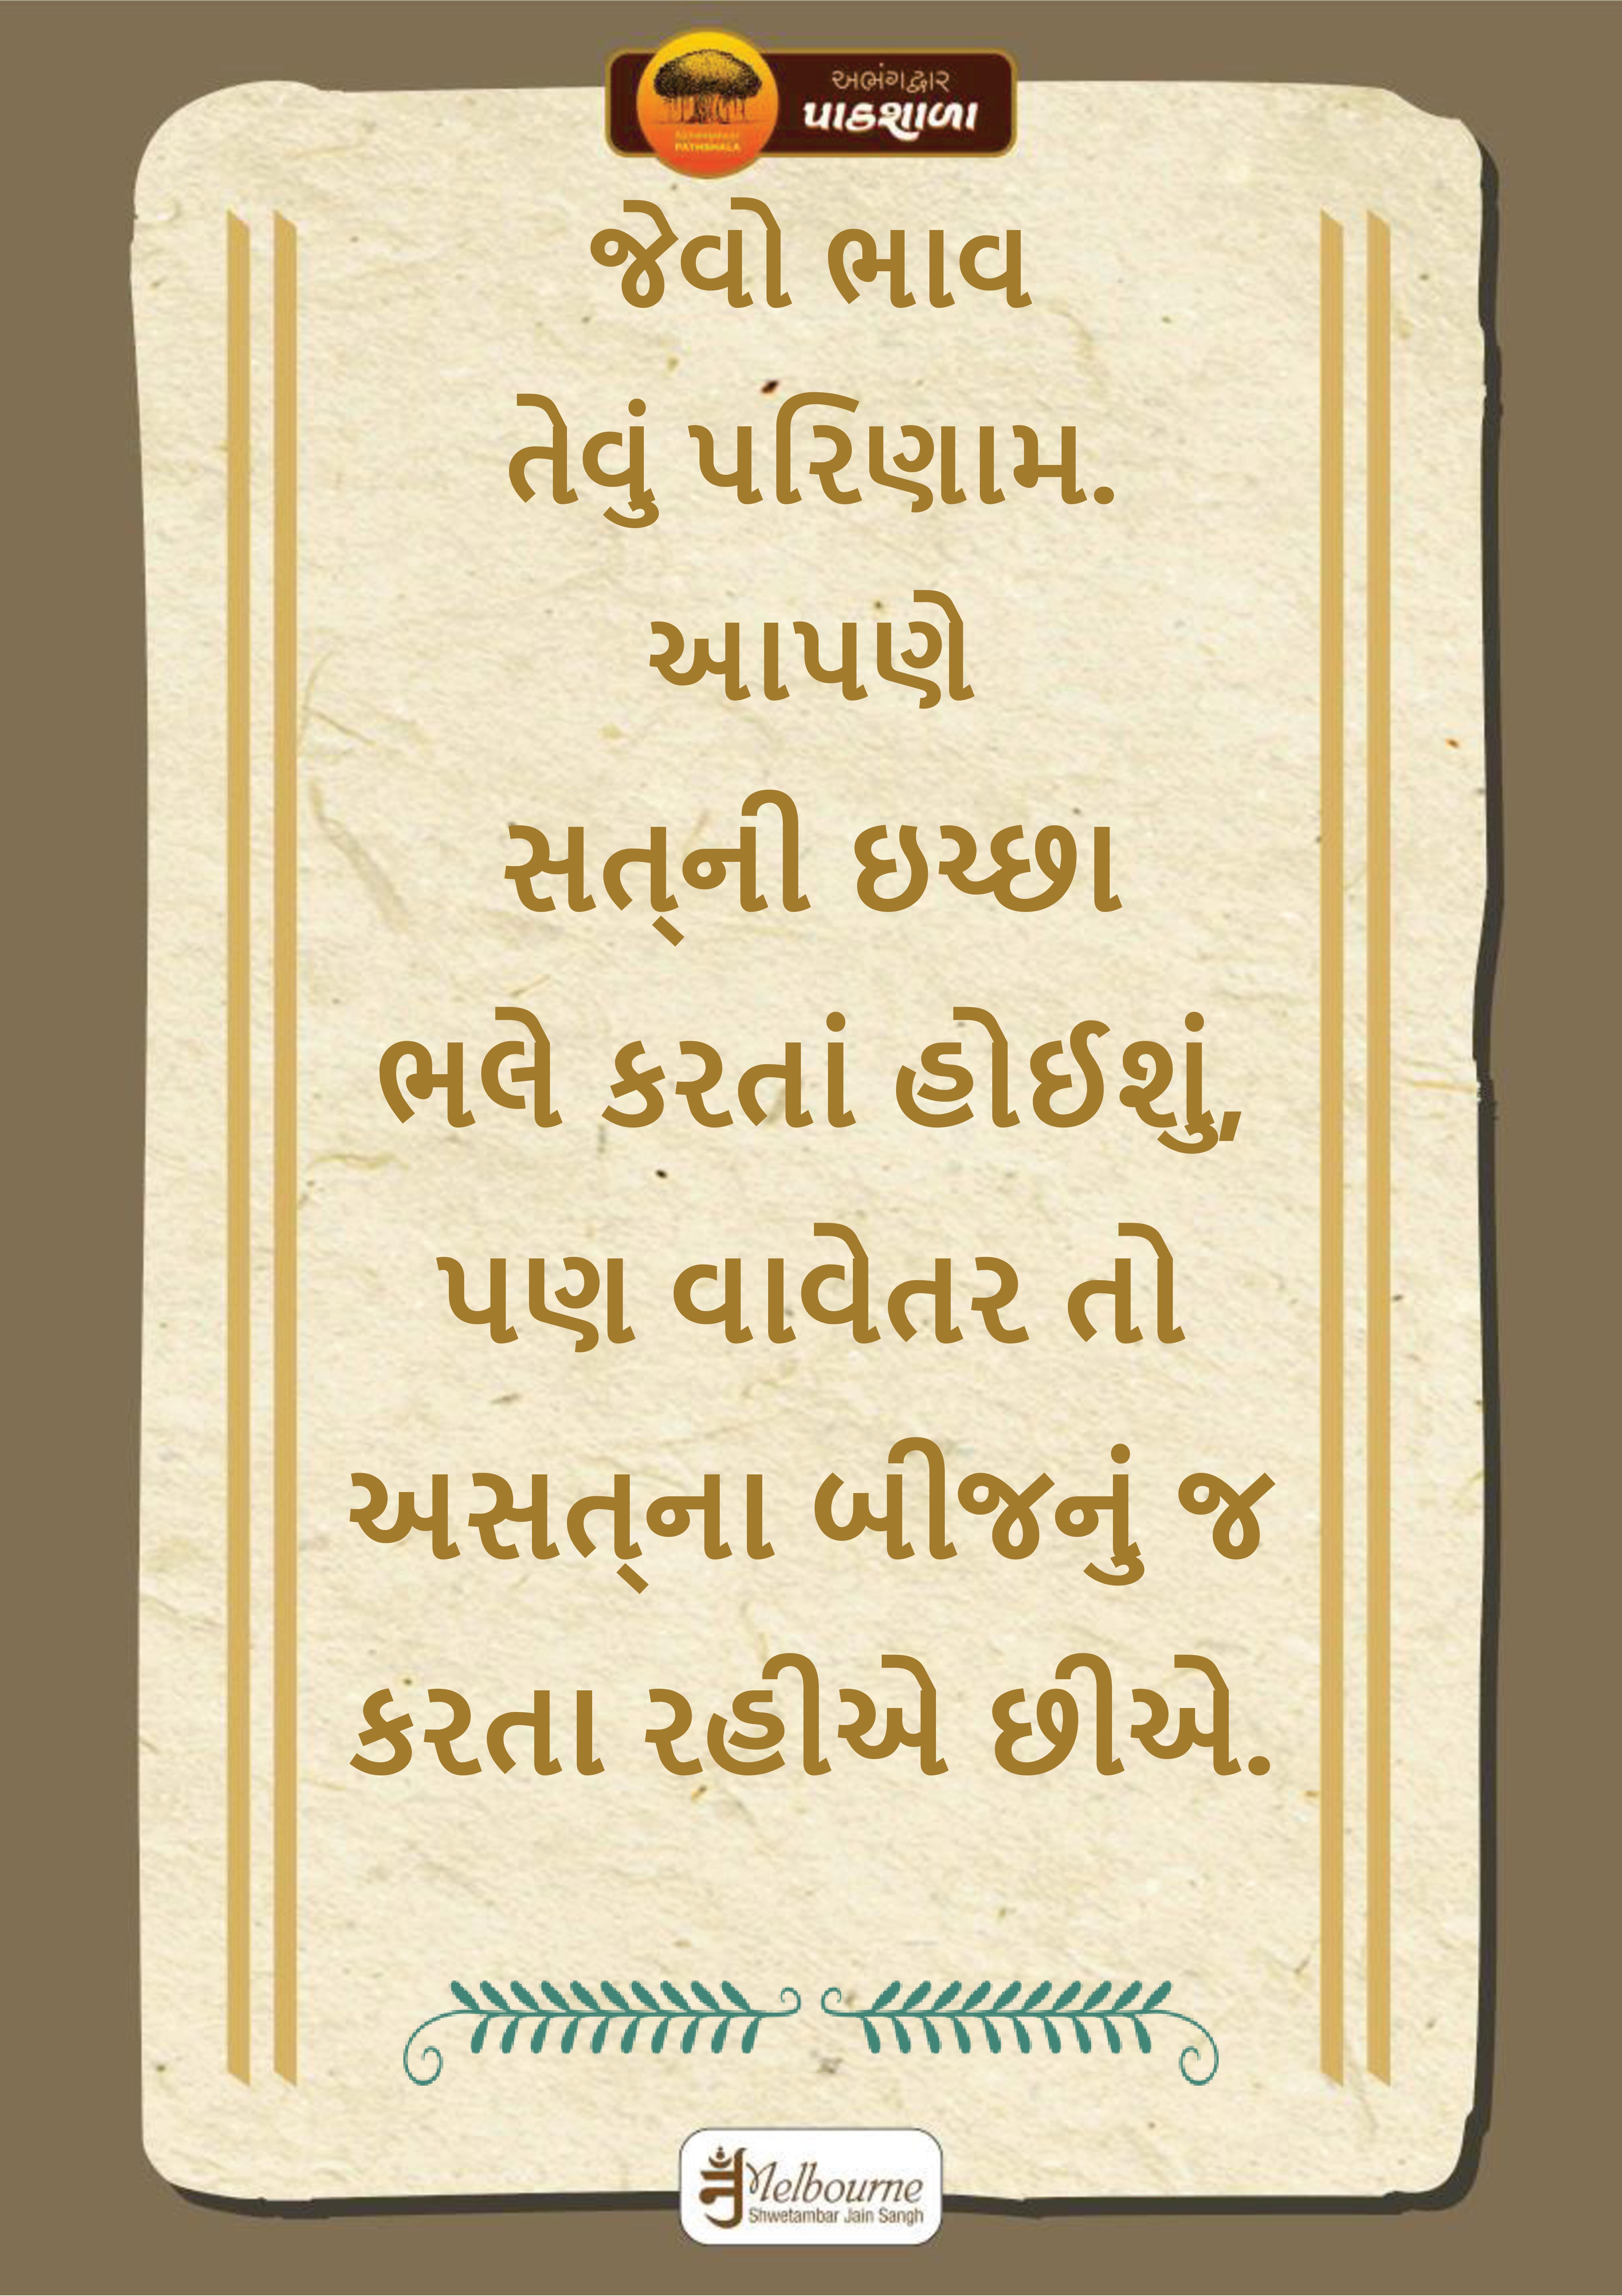 અભંગદ્વાર
પાઠશાળા
PATHSHALA
જેવો ભાવ
તેવું પરિણામ.
આપણે
સત્‌ની ઇચ્છા
ભલે કરતાં હોઈશું,
પણ વાવેતર તો
અસત્‌ના બીજનું જ
કરતા રહીએ છીએ.
Melbourne
Shwetambar Jain Sangh